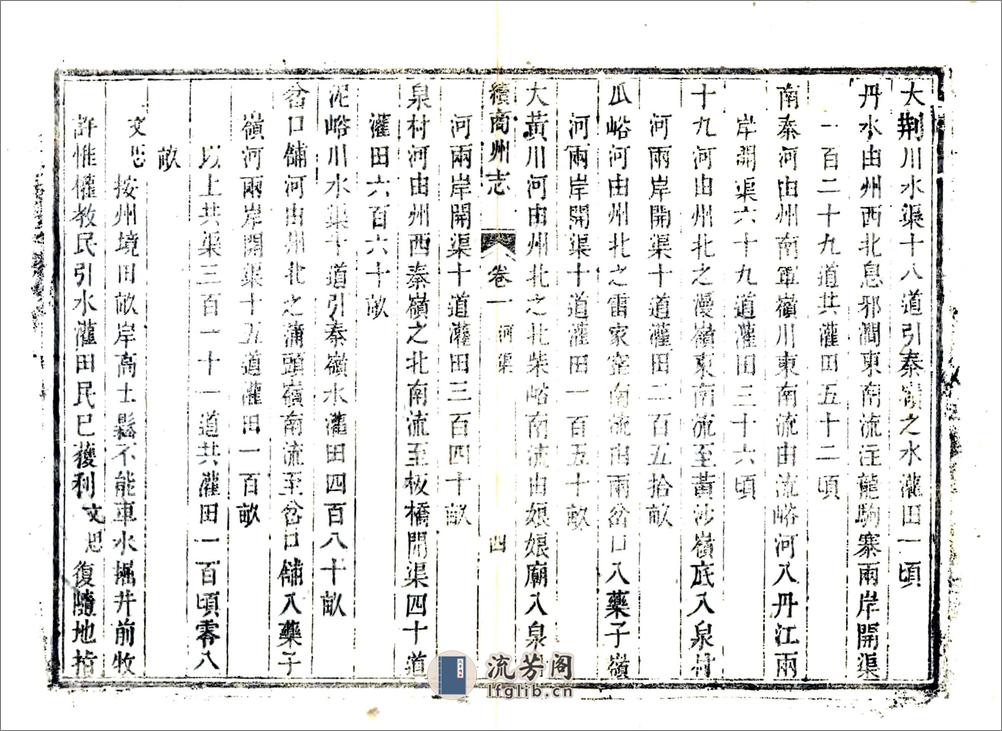 大荆川水渠十八道引秦嶺之水灌田一頃
丹水由州西北息邪澗東南流注龍駒寨兩岸開渠
一百二十九道共灌田五十二頃
南秦河由州南軍嶺川東南流由流峪河入丹江兩
岸開渠六十九道灌田三十六頃
十九河由州北之漫嶺東南流至黃沙嶺底入泉村
河兩岸開渠十道灌田二百五拾畝
瓜峪河由州北之雷家窑南流由兩岔口入藥子嶺
河兩岸開渠十道灌田一百五十畝
大黃川河由州北之北柴峪南流由娘娘廟入泉村
河兩岸開渠十道灌田三百四十畝
續商州志 卷一 河渠 四
泉村河由州西秦嶺之北南流至板橋開渠四十道
灌田六百六十畝
泥峪川水渠十道引秦嶺水灌田四百八十畝
岔口舖河由州北之蒲頭嶺南流至岔口舖入藥子
嶺河兩岸開渠十五道灌田一百畝
以上共渠三百一十一道共灌田一百頃零八
畝
文思按州境田畝岸高土鬆不能車水掘井前牧
許惟權教民引水灌田民已獲利文思復隨地指
流芳阁
lfglib.cn